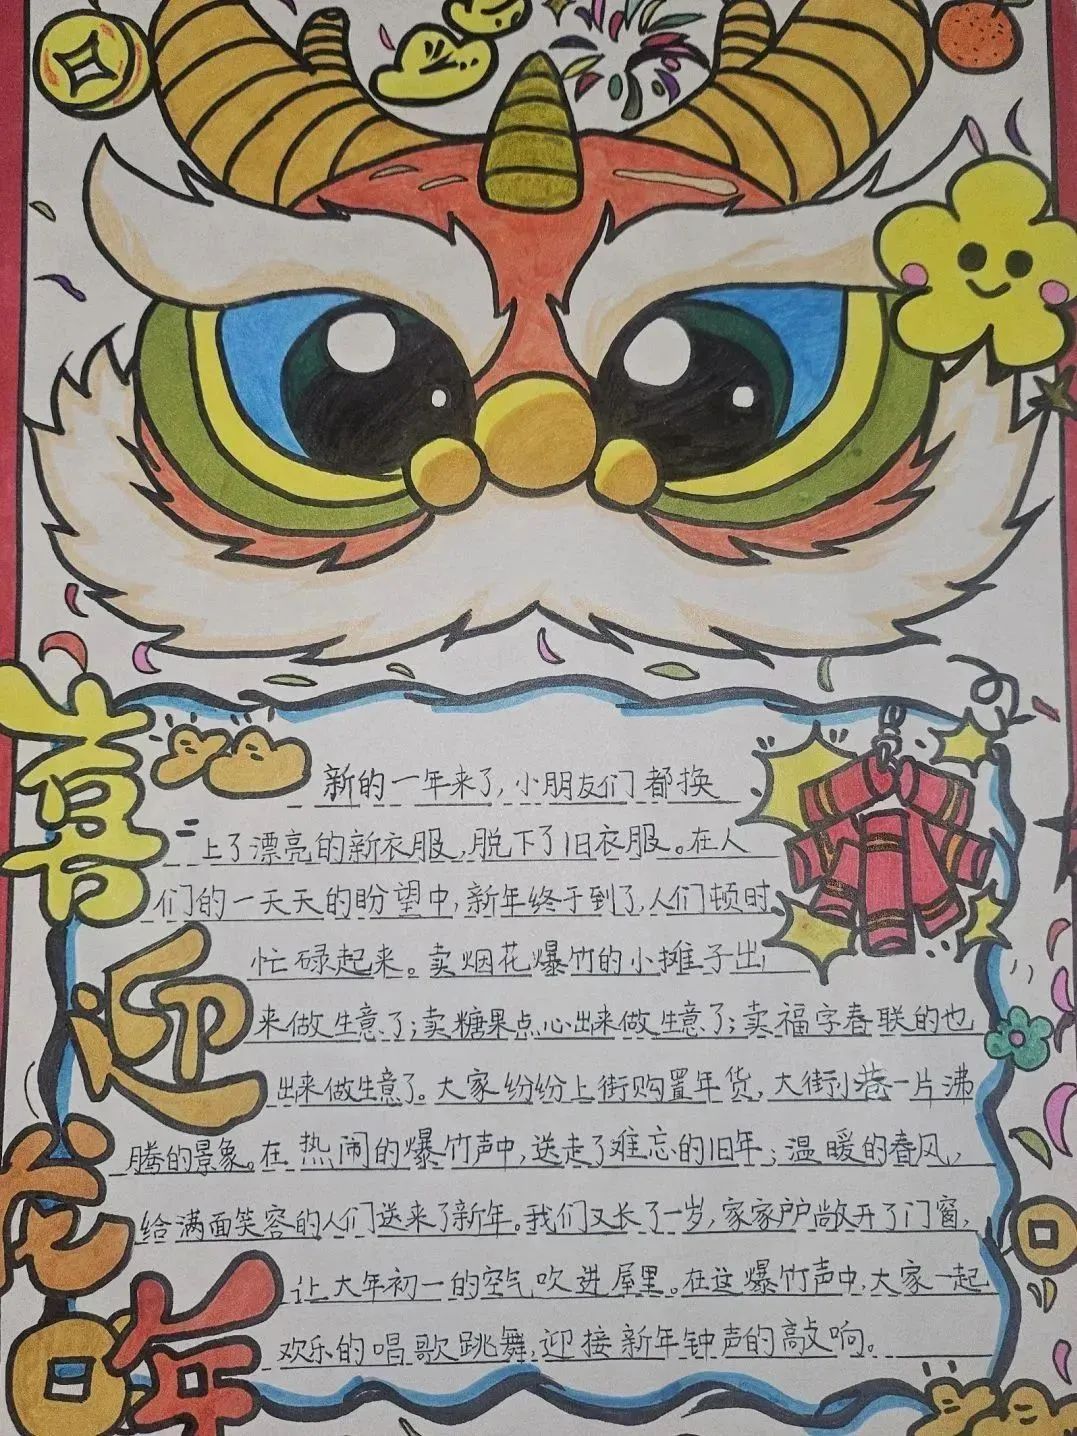 喜迎龙年
新的一年来了,小朋友们都换
上了漂亮的新衣服,脱下了旧衣服。在人
们的一天天的盼望中,新年终于到了,人们顿时
忙碌起来。卖烟花爆竹的小摊子出
来做生意了;卖糖果点心出来做生意了;卖福字春联的也
出来做生意了。大家纷纷上街购置年货,大街小巷一片沸
腾的景象。在热闹的爆竹声中,送走了难忘的旧年;温暖的春风,
给满面笑容的人们送来了新年。我们又长了一岁,家家户户敞开了门窗,
让大年初一的空气吹进屋里。在这爆竹声中,大家一起
欢乐的唱歌跳舞,迎接新年钟声的敲响。